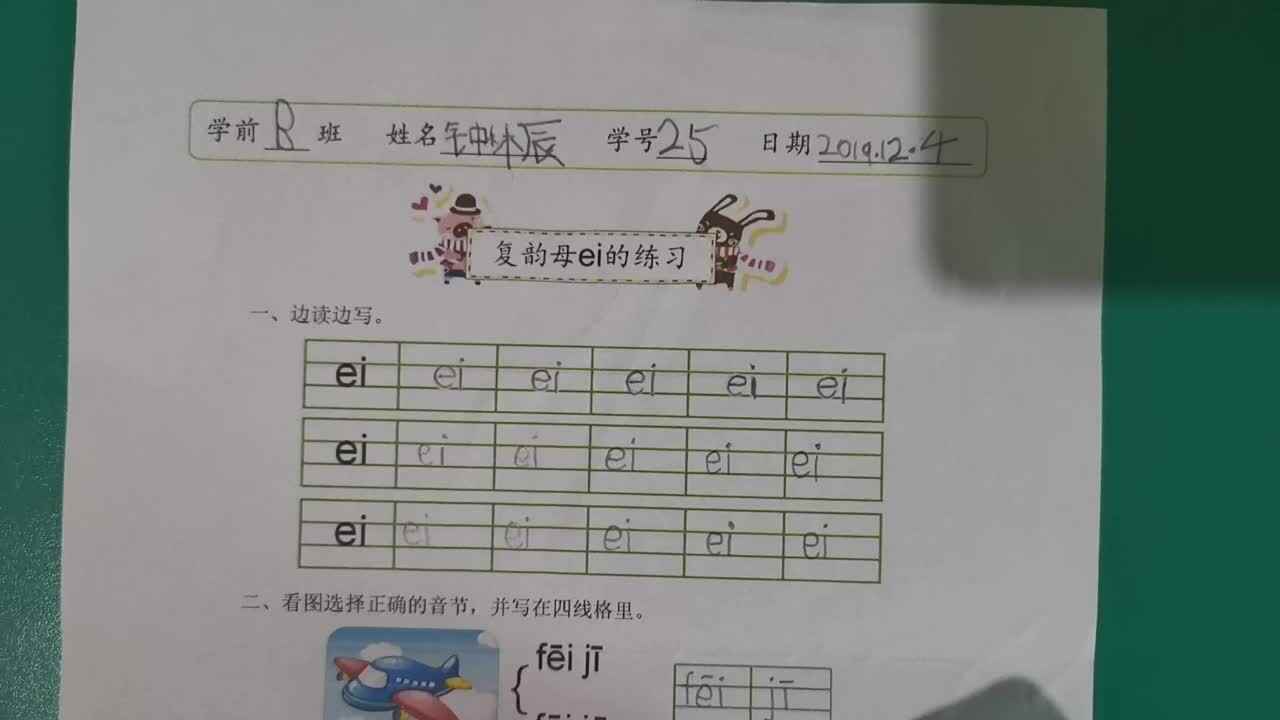 学前 B 班 姓名 钟林辰 学号 25 日期 2019.12.4
复韵母ei的练习
一、边读边写。
ei ei ei ei ei ei
ei ei ei ei ei ei
ei ei ei ei ei ei
二、看图选择正确的音节，并写在四线格里。
fēi jī
fēi jī